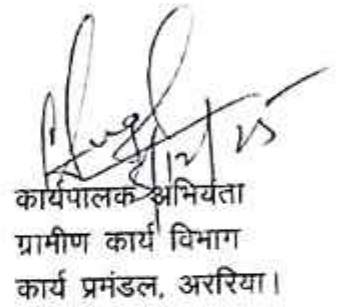 कार्यपालक अभियंता
ग्रामीण कार्य विभाग
कार्य प्रमंडल, अररिया।